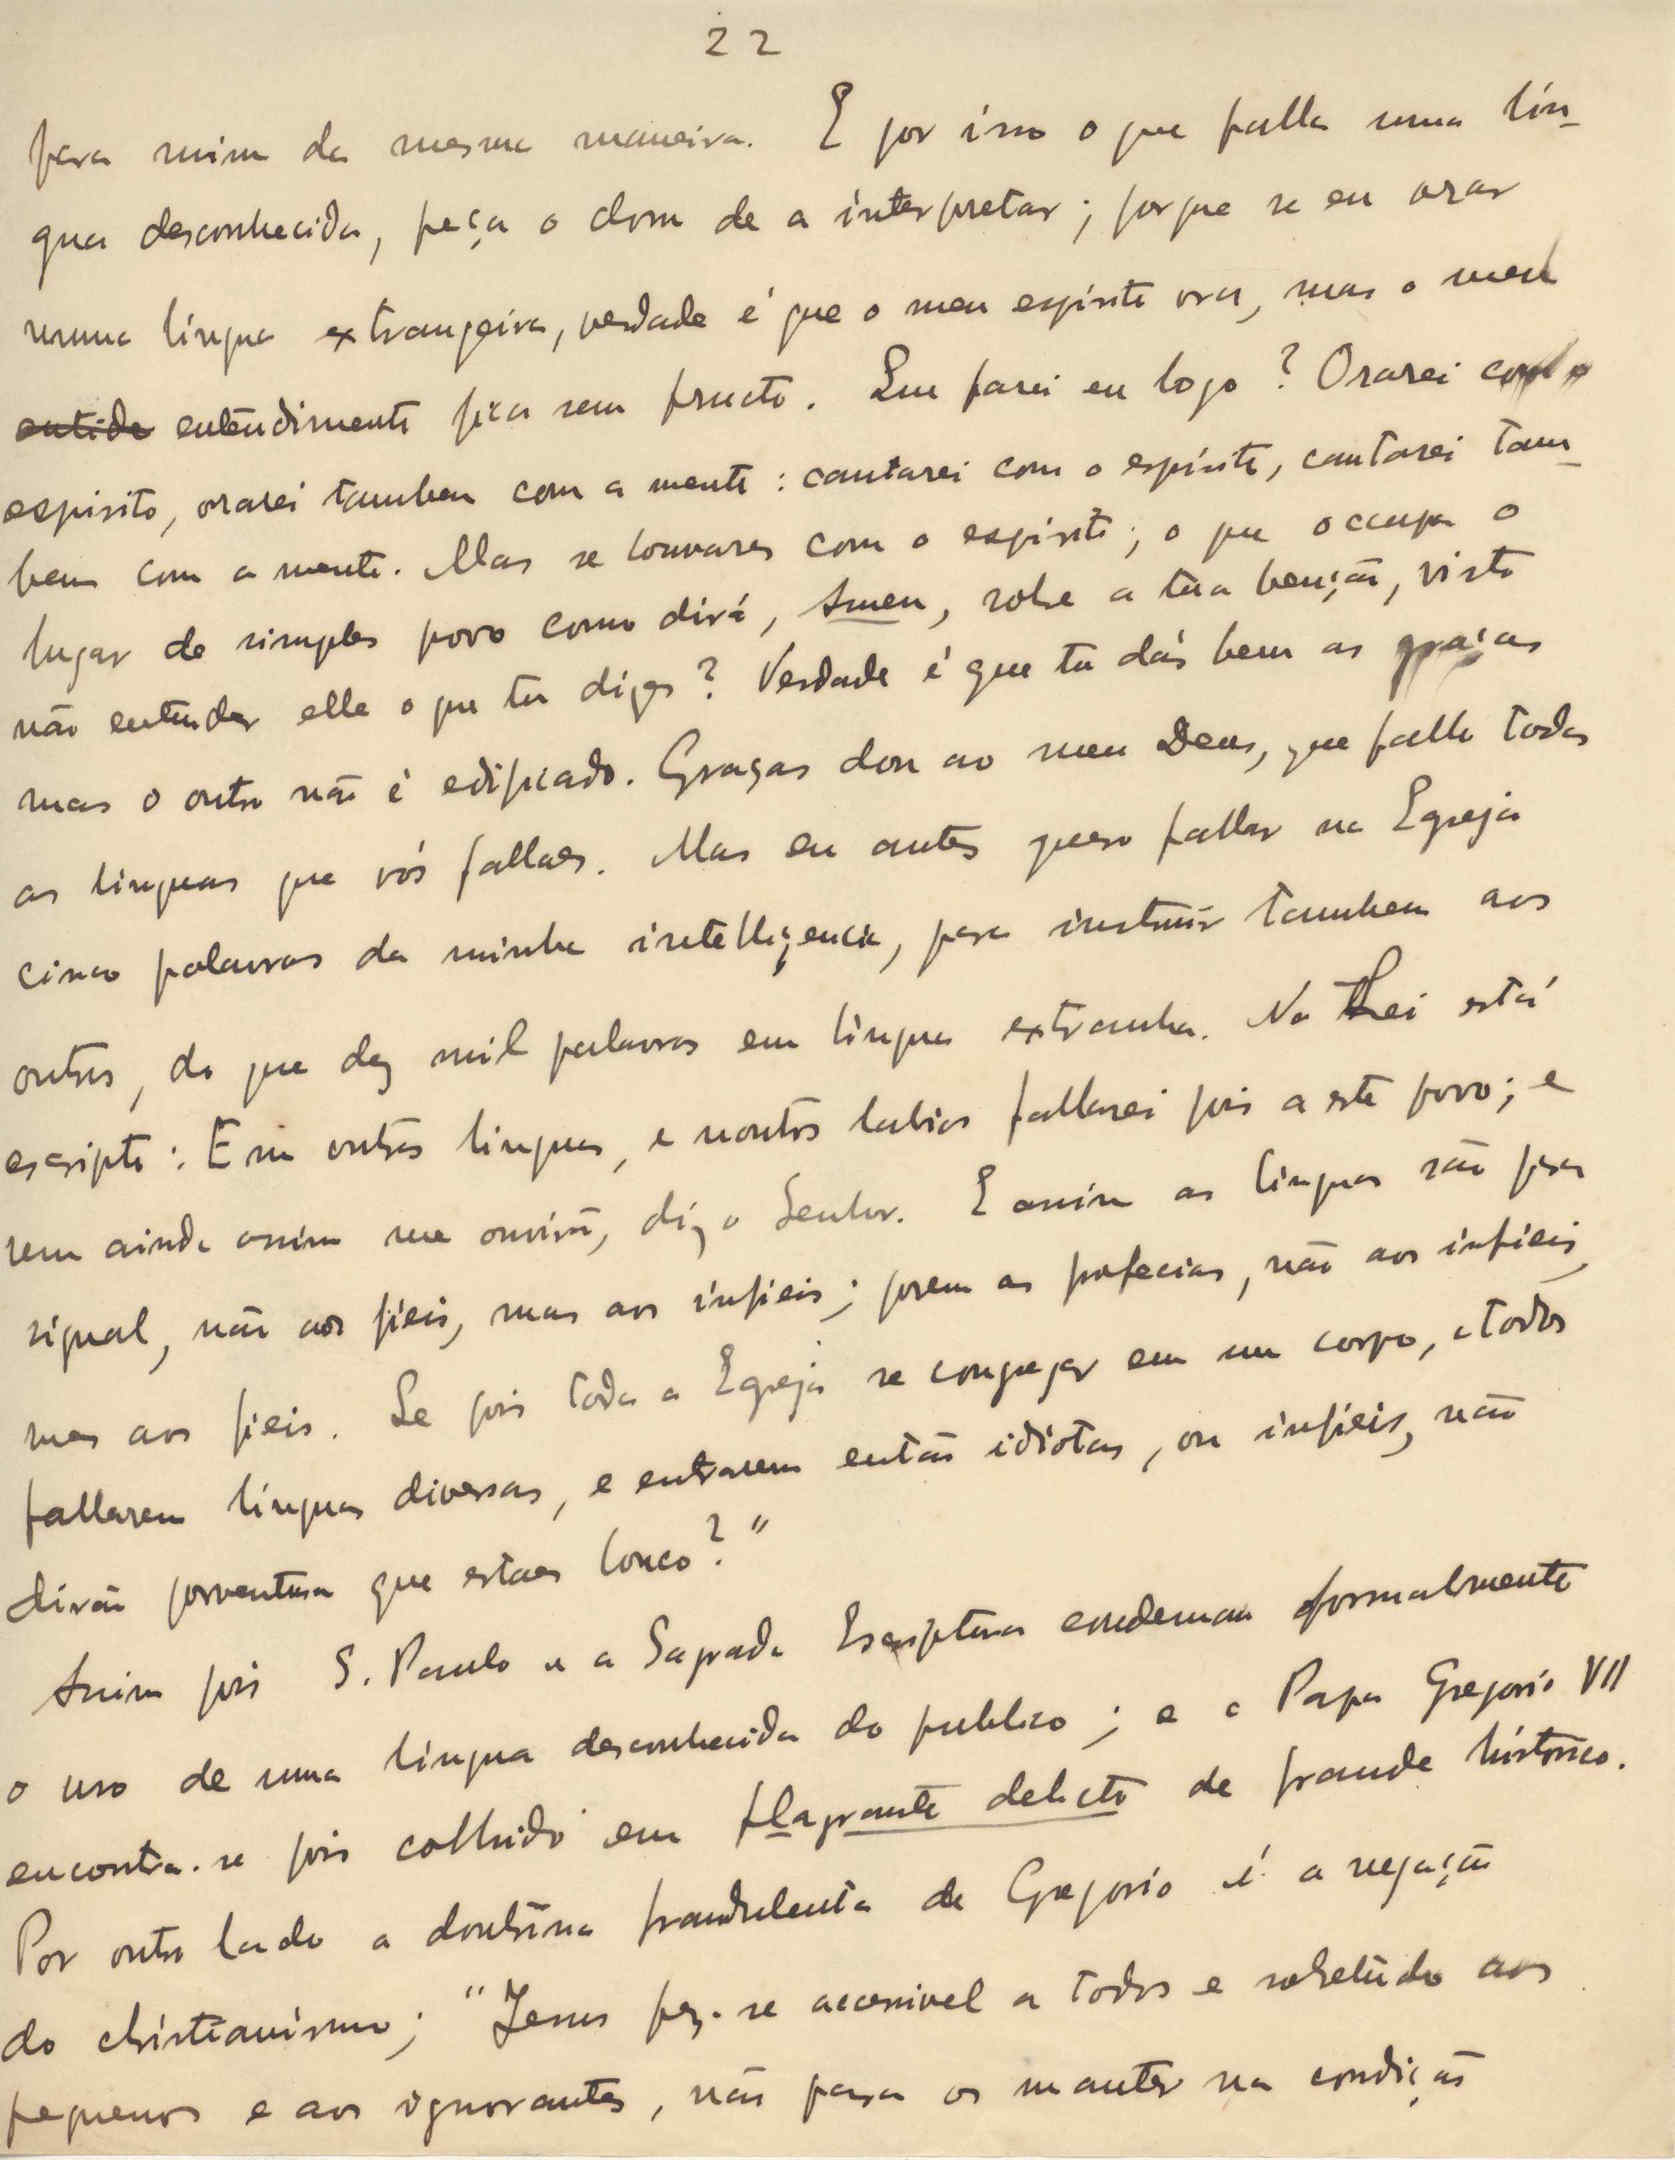 22
para mim da mesma maneira. E por isso o que falla uma lin-
gua desconhecida, peça o dom de a interpretar; porque se eu orar
numa lingua extrangeira, verdade é que o meu espirito ora, mas o meu
entide entendimento fica sem fructo. Que farei eu logo? Orarei com o
espirito, orarei tambem com a mente: cantarei com o espirito, cantarei tam-
bem com a mente. Mas se louvares com o espirito; o que occupa o
lugar de simples povo como dirá, Amen, sobre a tua benção, visto
não entender elle o que tu dizes? Verdade é que tu dás bem as graças
mas o outro não é edificado. Graças dou ao meu Deus, que fallo todas
as linguas que vós fallaes. Mas eu antes quero fallar na Egreja
cinco palavras da minha intelligencia, para instruir tambem aos
outros, do que dez mil palavras em lingua extranha. Na Lei está
escripto: Em outras linguas, e noutros labios fallarei pois a este povo; e
nem ainda assim me ouvirá, diz o Senhor. E assim as linguas são para
signal, não aos fieis, mas aos infieis; porem as profecias, não aos infieis,
mas aos fieis. Se pois toda a Egreja se congregar em um corpo, e todos
fallarem linguas diversas, e entrarem então idiotas, ou infieis, não
dirão porventura que estaes louco?"
Assim pois S. Paulo e a Sagrada Escriptura condemnam formalmente
o uso de uma lingua desconhecida do publico; e o Papa Gregorio VII
encontra-se pois colhido em flagrante delicto de fraude historico.
Por outro lado a doutrina fraudulenta de Gregorio é a negação
do christianismo; "Jesus fez-se accessivel a todos e sobretudo aos
pequenos e aos ignorantes, não para os manter na condição